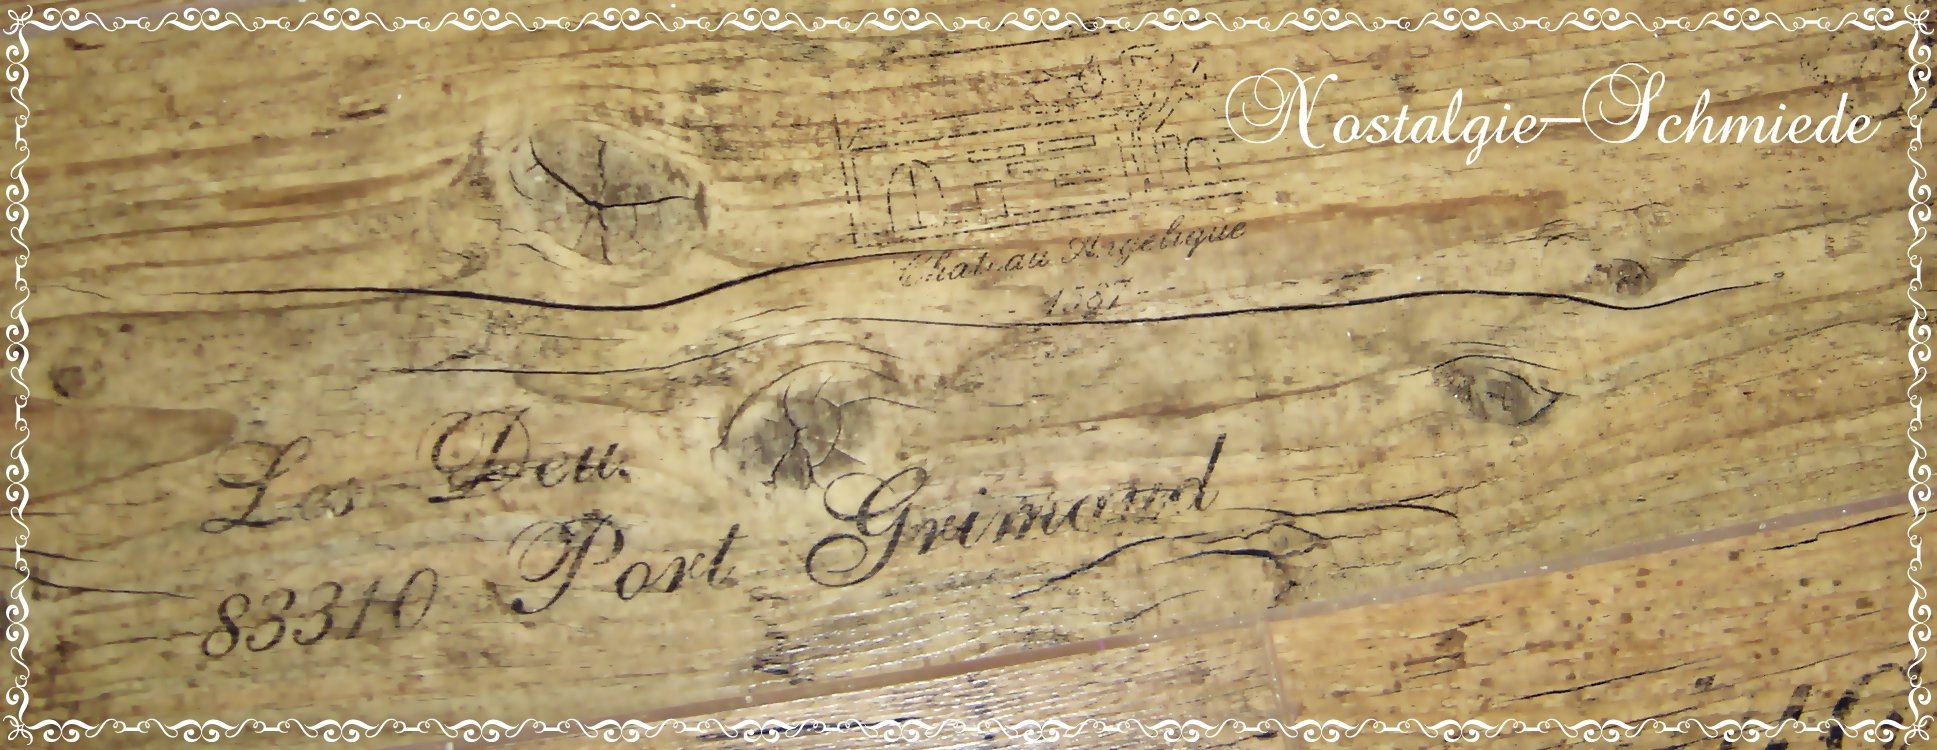 Nostalgie-Schmiede
Chateau Angelique
1587
Les Deu
83310 Port Grimaud